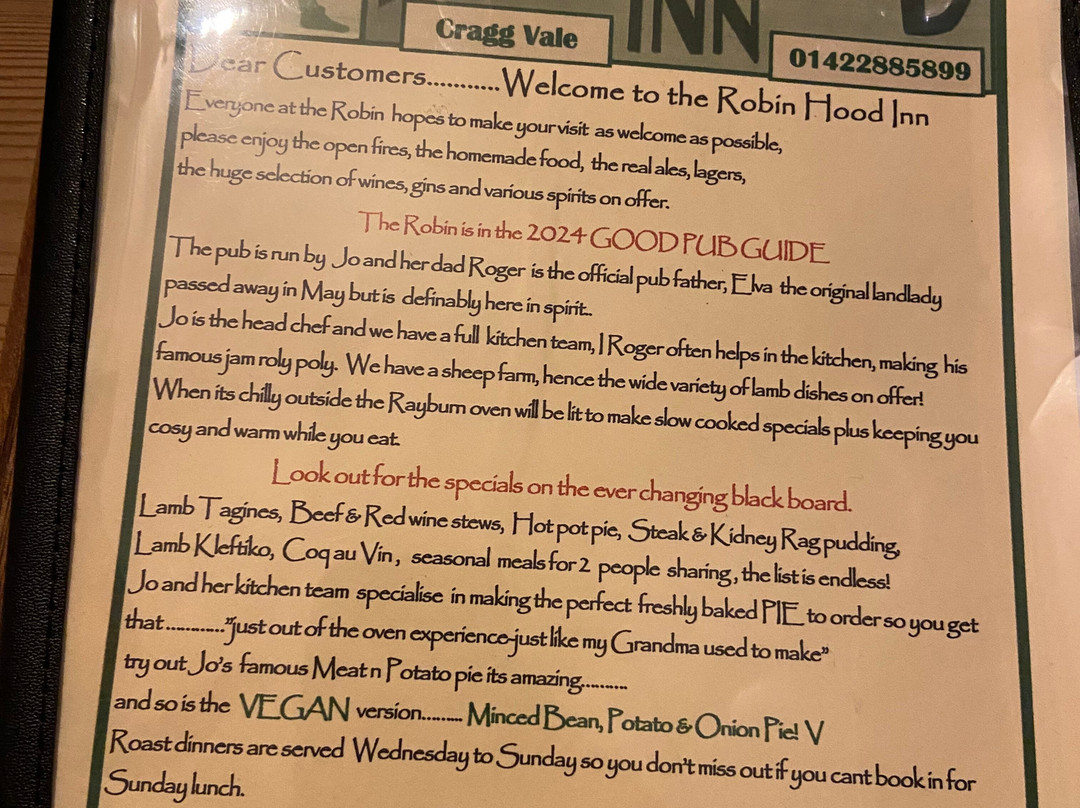 Cragg Vale
INN
01422885899
Dear Customers...........Welcome to the Robin Hood Inn
Everyone at the Robin hopes to make your visit as welcome as possible,
please enjoy the open fires, the homemade food, the real ales, lagers,
the huge selection of wines, gins and various spirits on offer.
The Robin is in the 2024 GOOD PUB GUIDE
The pub is run by Jo and her dad Roger is the official pub father, Elva the original landlady
passed away in May but is definably here in spirit..
Jo is the head chef and we have a full kitchen team, I Roger often helps in the kitchen, making his
famous jam roly poly. We have a sheep farm, hence the wide variety of lamb dishes on offer!
When its chilly outside the Rayburn oven will be lit to make slow cooked specials plus keeping you
cosy and warm while you eat.
Look out for the specials on the ever changing black board.
Lamb Tagines, Beef & Red wine stews, Hot pot pie, Steak & Kidney Rag pudding,
Lamb Kleftiko, Coq au Vin, seasonal meals for 2 people sharing, the list is endless!
Jo and her kitchen team specialise in making the perfect freshly baked PIE to order so you get
that............"just out of the oven experience-just like my Grandma used to make"
try out Jo's famous Meat n Potato pie its amazing..........
and so is the VEGAN version......... Minced Bean, Potato & Onion Pie! V
Roast dinners are served Wednesday to Sunday so you don't miss out if you cant book in for
Sunday lunch.